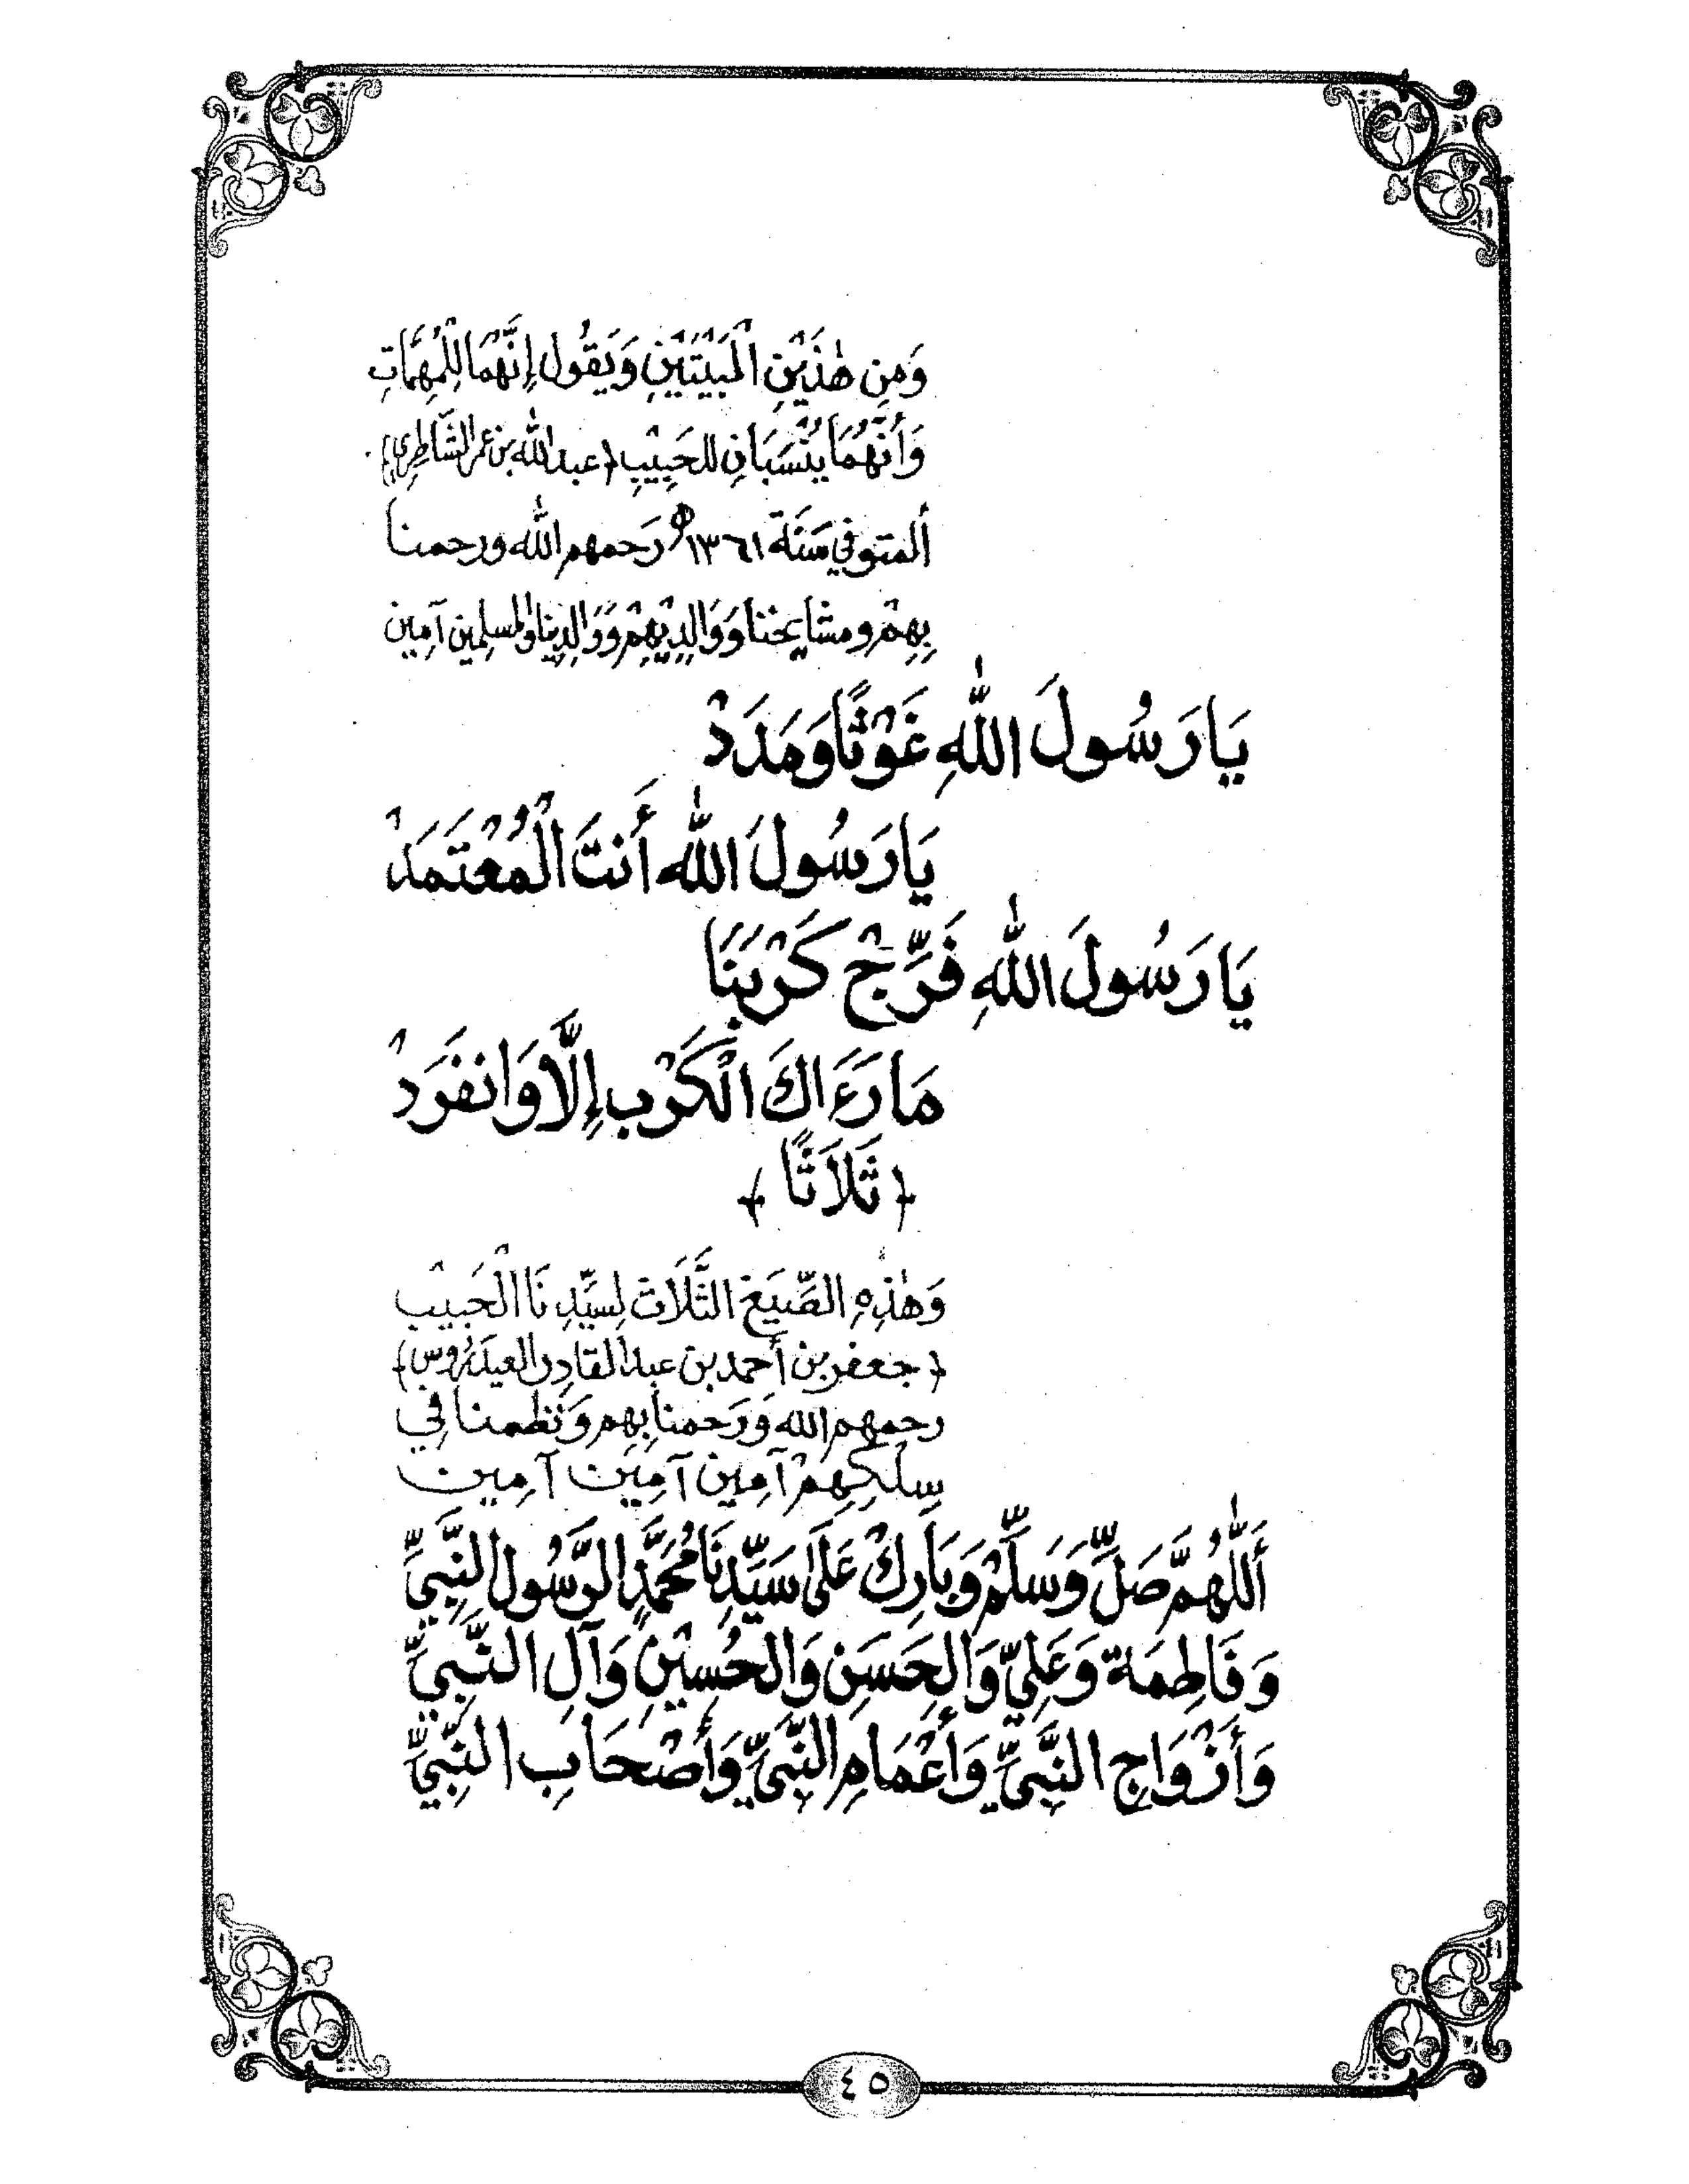 وَمِن هٰذَيْنِ الْبَيْتَيْنِ وَيَقُول إِنَّهُمَا لِلْمُهِمَّاتِ
وَأَنَّهُمَا يُنْسَبَانِ للحَبِيْبِ ﴿عبد الله بن عمر الشَّاطِرِي﴾
ألمتوفي سَنَة ١٣٦١ﻫ رَحمهم الله ورحمنا
بِهِمْ ومشايِخنا وَوَالِدِيْهِمْ وَوَالِدِينا والمسلِمين آمِين
يَا رَسُولَ اللهِ غَوْثًا وَمَدَدْ
يَا رَسُولَ الله أَنتَ الْمُعْتَمَدْ
يَا رَسُولَ اللهِ فَرِّجْ كَرْبَنَا
مَا رَءَاكَ الْكَرْب إِلَّا وَانفَرَدْ
﴿ ثَلَاثًا ﴾
وَهٰذِهِ الصِّيَغ الثَّلَاث لِسَيِّدِنَا الْحَبِيْب
﴿جعفر بن أحمد بن عبد القادِر العيدَرُوس﴾
رحمهم الله وَرَحمنا بِهِم وَنَظمنا فِي
سِلْكِهِمْ آمِين آمِيْن آمِين
أَللّٰهُمَّ صَلِّ وَسَلِّمْ وَبَارِكْ عَلَى سَيِّدِنَا مُحَمَّدٍ الرَّسُول النَّبِيِّ
وَفَاطِمَة وَعَلِيّ وَالحَسَنِ وَالحُسَيْنِ وَآلِ النَّبِيِّ
وَأَزْوَاجِ النَّبِيِّ وَأَعْمَامِ النَّبِيِّ وَأَصْحَابِ النَّبِيِّ
٤٥